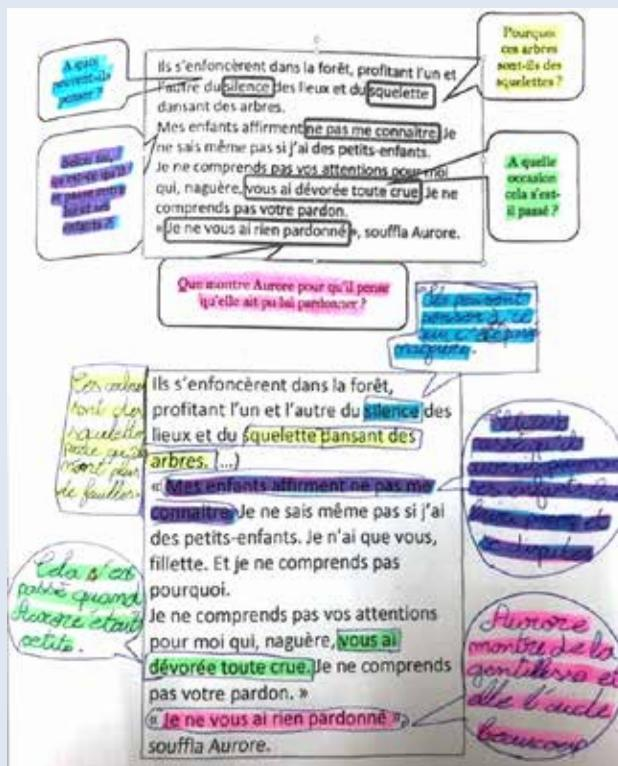 A quoi
peuvent-ils
penser ?
Pourquoi
ces arbres
sont-ils des
squelettes ?
Ils s'enfoncèrent dans la forêt, profitant l'un et
l'autre du silence des lieux et du squelette
dansant des arbres.
Mes enfants affirment ne pas me connaître. Je
ne sais même pas si j'ai des petits-enfants.
Je ne comprends pas vos attentions pour moi
qui, naguère, vous ai dévorée toute crue. Je ne
comprends pas votre pardon.
« Je ne vous ai rien pardonné », souffla Aurore.
Selon toi,
qu'est-ce qu'il
s'est passé entre
lui et ses
enfants ?
A quelle
occasion
cela s'est-
il passé ?
Que montre Aurore pour qu'il pense
qu'elle ait pu lui pardonner ?
Ils peuvent
penser à ce
qui c'est passé
naguère.
Ces arbres
sont des
squelettes
parce qu'ils
n'ont plus
de feuilles.
Ils s'enfoncèrent dans la forêt,
profitant l'un et l'autre du silence des
lieux et du squelette dansant des
arbres. (...)
« Mes enfants affirment ne pas me
connaître. Je ne sais même pas si j'ai
des petits-enfants. Je n'ai que vous,
fillette. Et je ne comprends pas
pourquoi.
Je ne comprends pas vos attentions
pour moi qui, naguère, vous ai
dévorée toute crue. Je ne comprends
pas votre pardon. »
« Je ne vous ai rien pardonné »,
souffla Aurore.
ses enfants
Cela s'est
passé quand
Aurore était
petite.
Aurore
montre de la
gentillesse et
elle l'aide
beaucoup